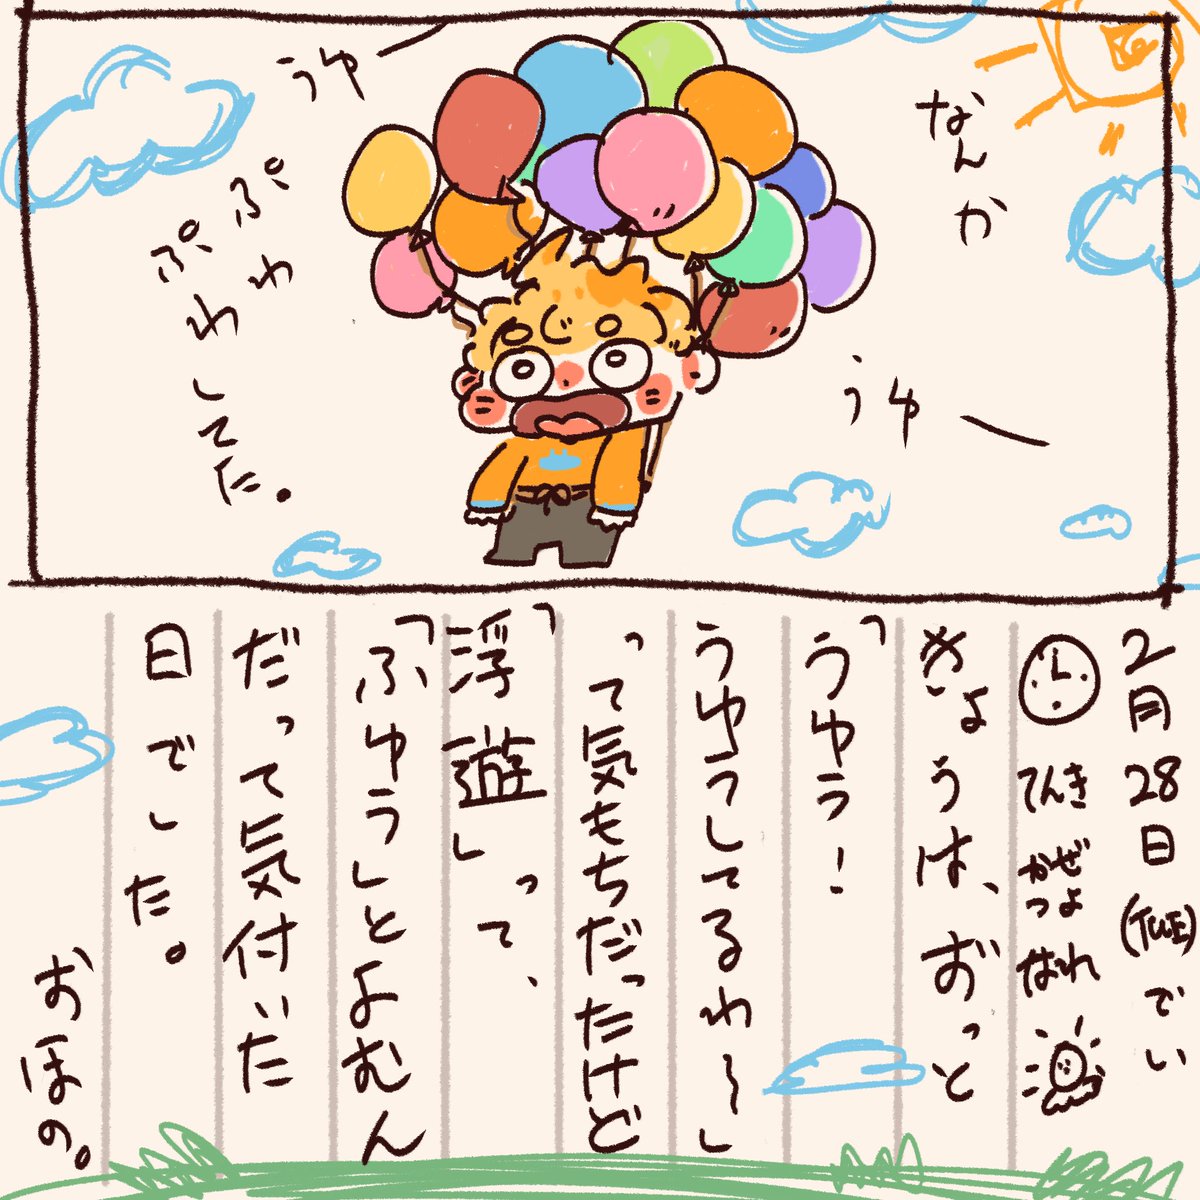 なんか
うゅー
うゅー
ぷわ
ぷわしてた。
2月28日(TUE)でい
てんき かぜつよ はれ
きょうは、ずっと
「うゅう!
うゅうしてるわ〜」
って気もちだったけど
「浮遊」って、
「ふゅう」とよむん
だって気付いた
日でした。
おほの。